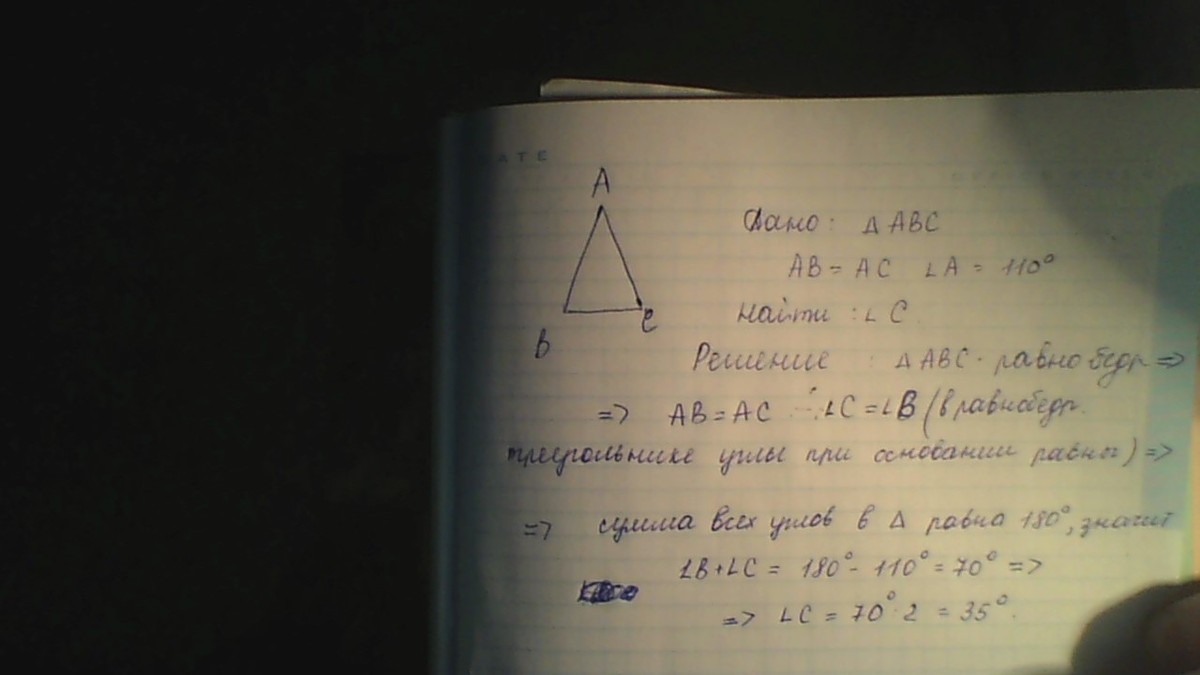 ATE
A
B
C
Дано: Δ ABC
AB = AC ∠A = 110°
Найти: ∠C
Решение: Δ ABC - равнобедр =>
=> AB = AC ∠C = ∠B (в равнобедр.
треугольнике углы при основании равны) =>
=> сумма всех углов в Δ равна 180°, значит
∠B + ∠C = 180° - 110° = 70° =>
=> ∠C = 70° : 2 = 35°.